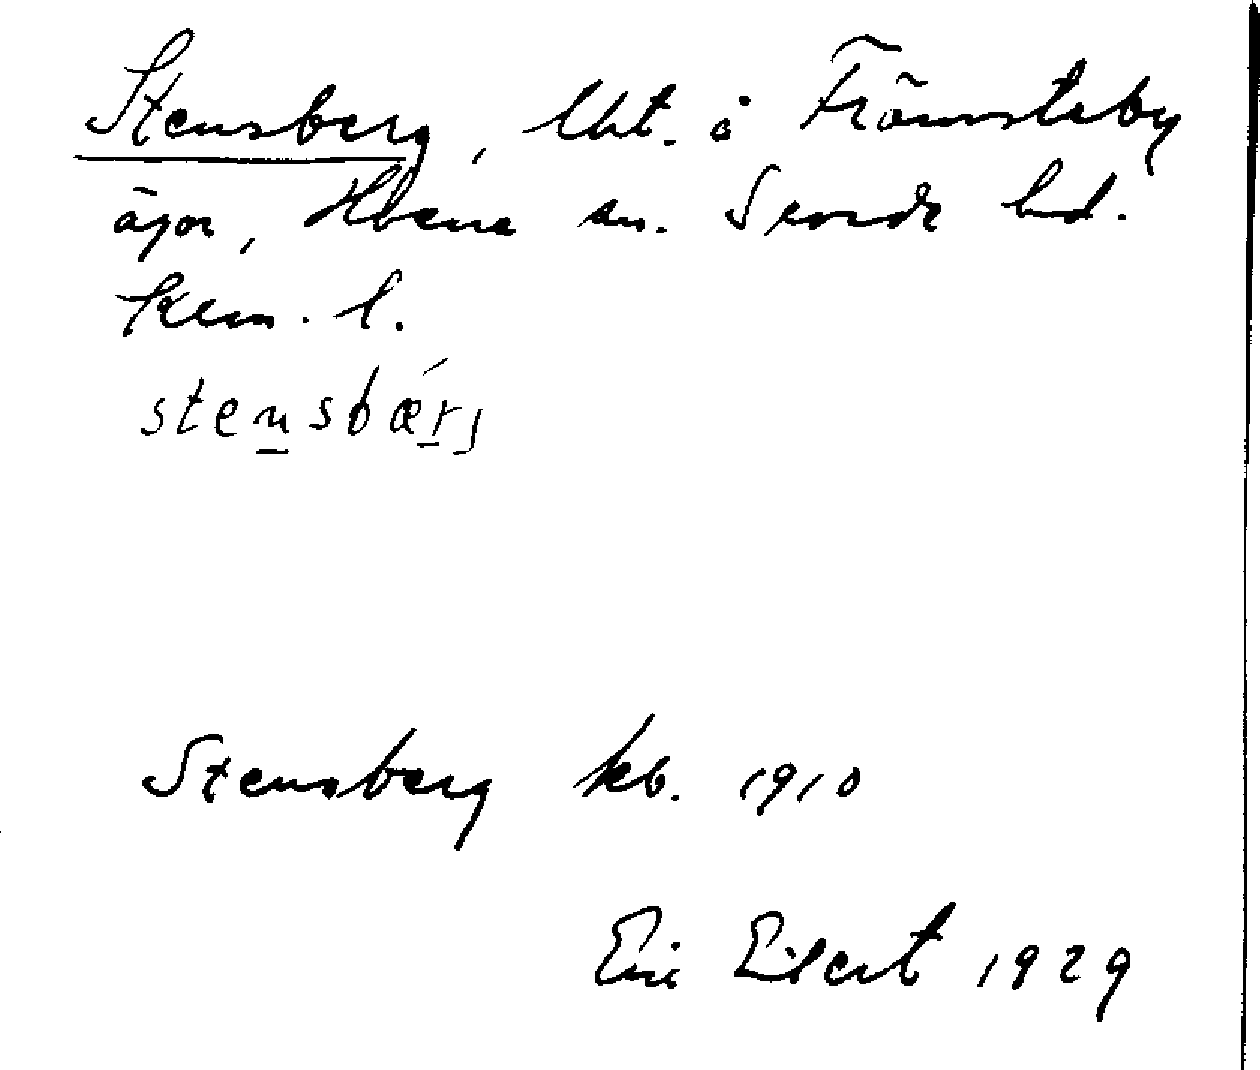 Stensberg, lht. å Främsteby
ägor, Hbene sn. Sevede hd.
Kem. l.
stensbǽrj
Stensberg kb. 1910
Eric Eilert 1929